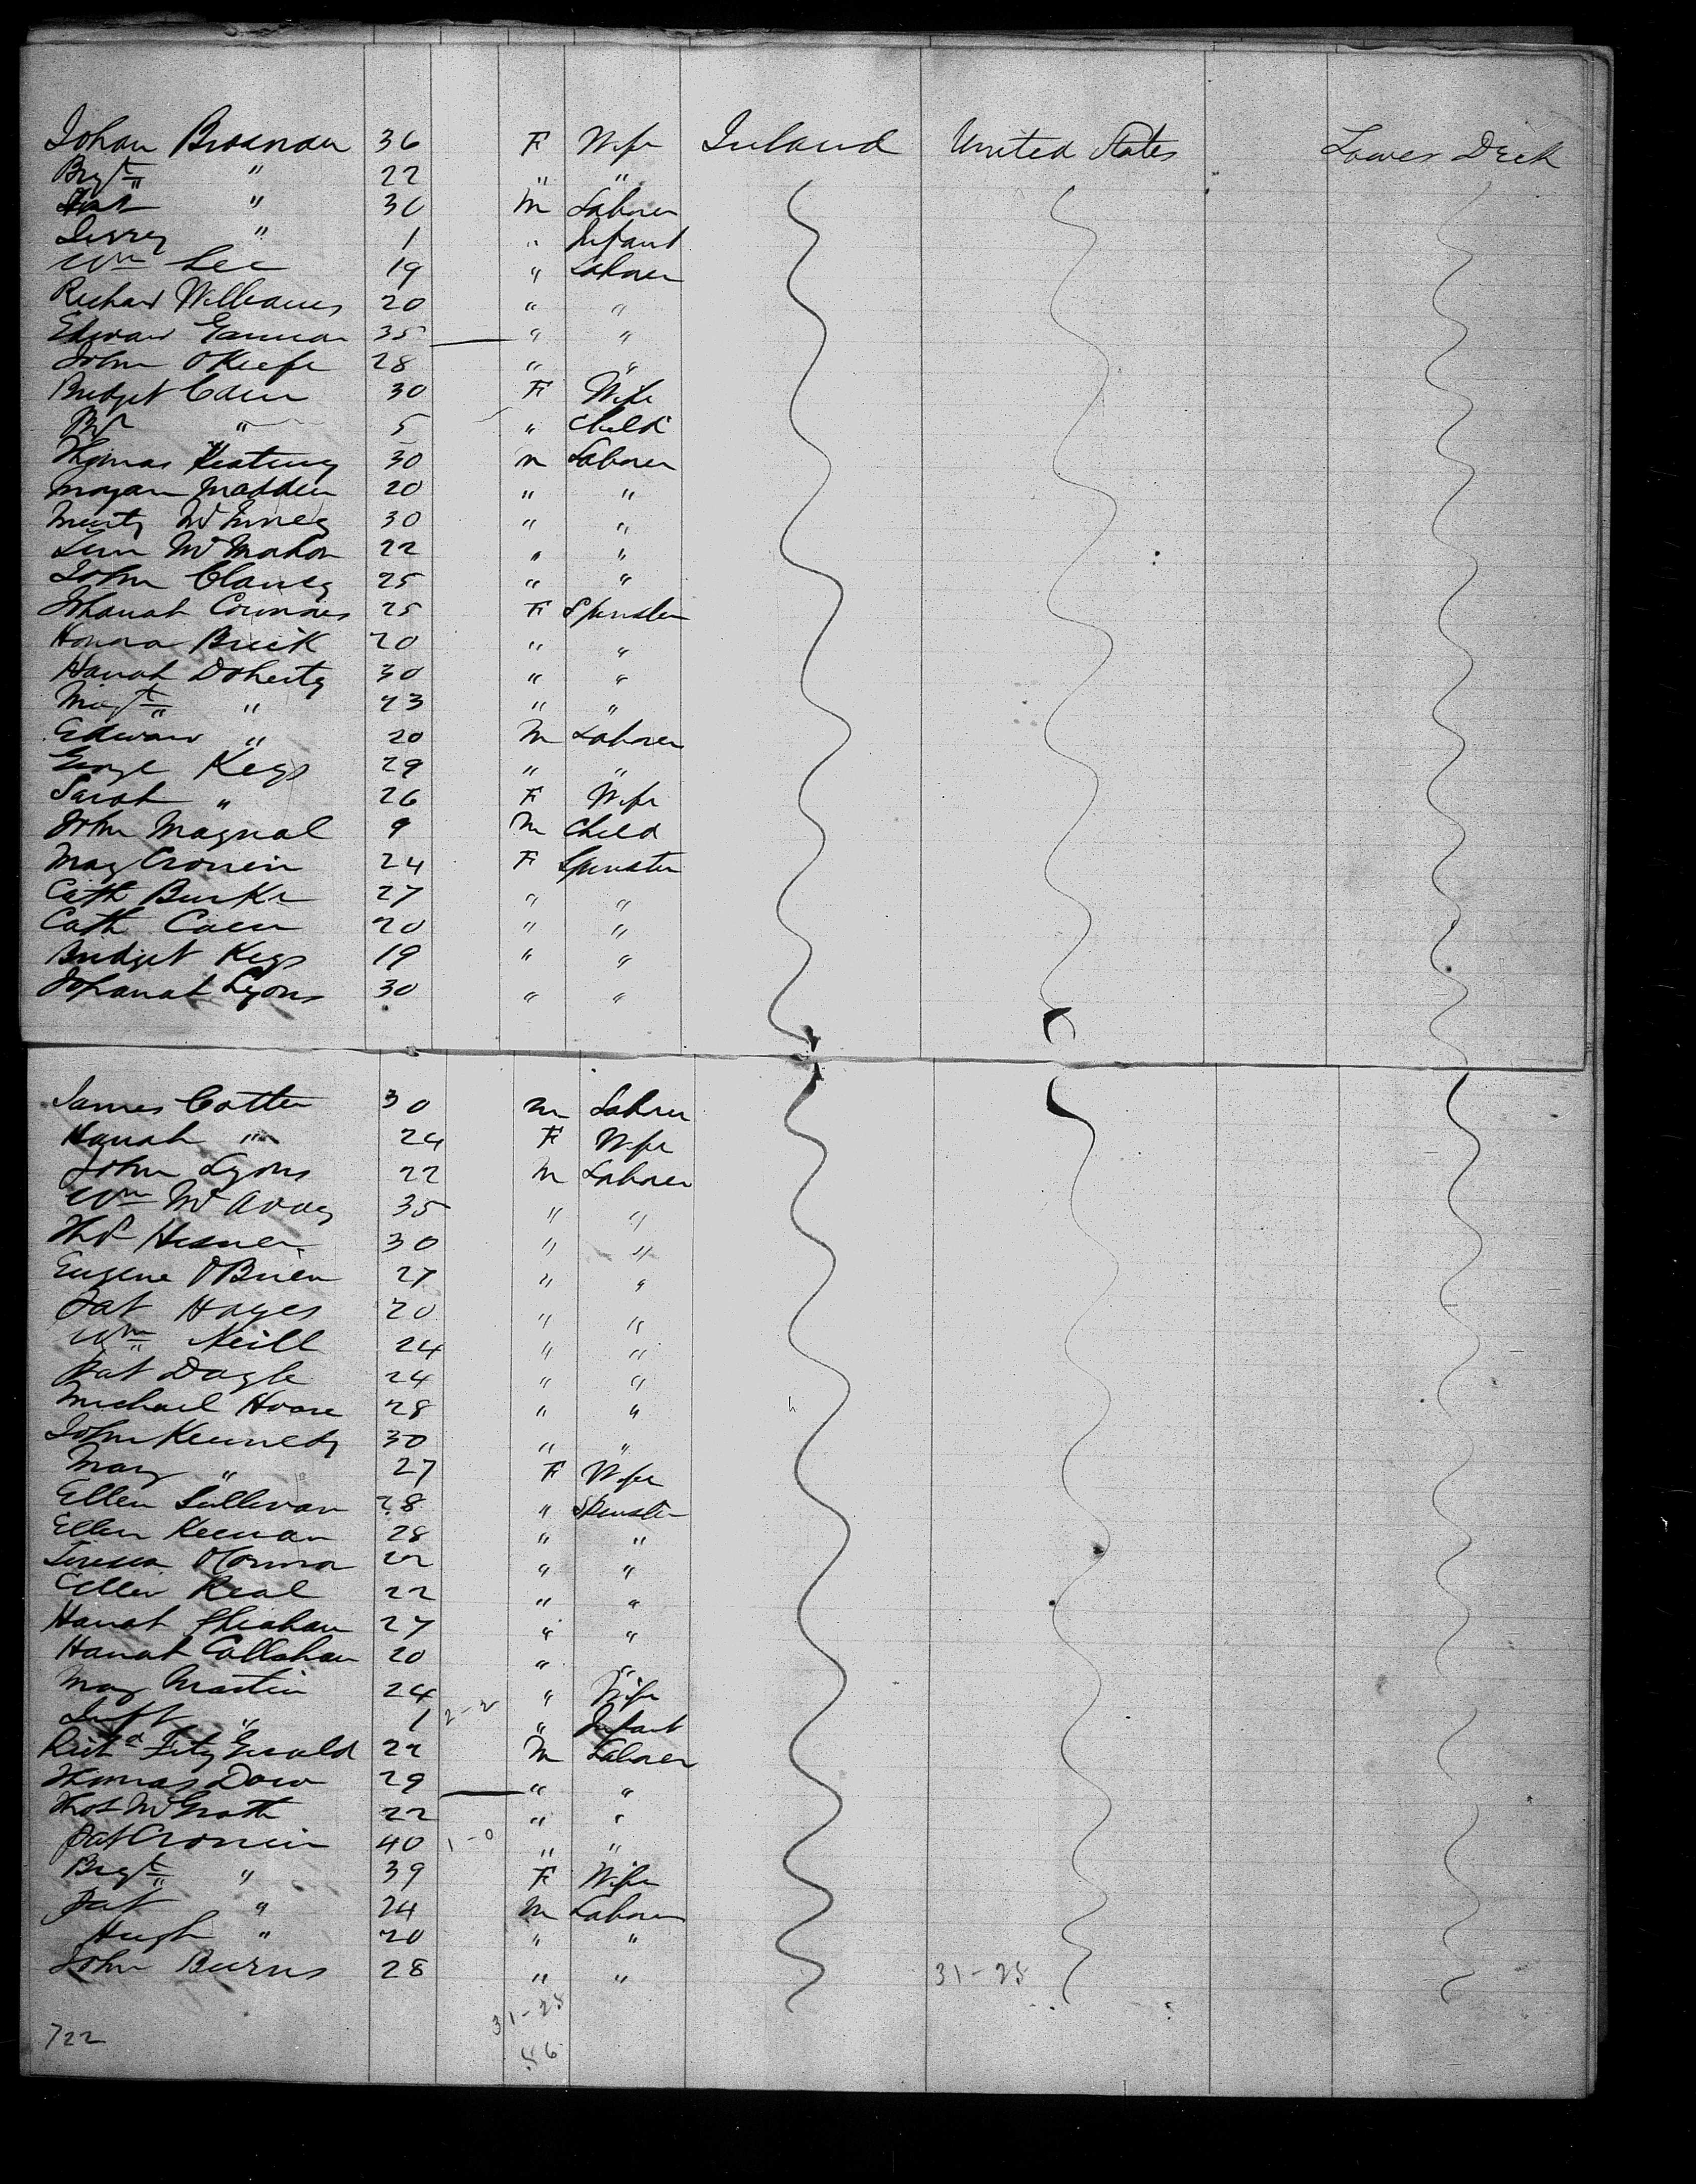 Johan Brosnan 36 F Wife Ireland United States Lower Deck
Brgt " 22 " "
" 30 m Laborer
Jerrey " 1 " Infant
Wm Lee 19 " Laborer
Richard Williams 20 " "
Edward Gannon 35 " "
John OKeefe 28 " "
Bridget Coen 30 F Wife
Bt " 5 " Child
Thomas Keating 30 m Laborer
Morgan Madden 20 " "
Murty 30 " "
McMahon 22 " "
John Clancy 25 " "
Johanah Connors 25 F Spinster
Honora Brick 20 " "
Hanah Doherty 30 " "
Magt " 23 " "
Edward " 20 M Laborer
George Keys 29 " "
Sarah " 26 F Wife
John Magnal 9 M Child
May Cronin 24 F Spinster
Cath Burke 27 " "
Cath Coen 20 " "
Bridget Keys 19 " "
Johanah Lyons 30 " "
James Cotter 30 m Laborer
Hanah " 24 F Wife
John Lyons 22 M Laborer
Wm 35 " "
Thos 30 " "
Eugene OBrien 27 " "
Pat Hayes 20 " "
Wm Neill 24 " "
Pat Dogle 24 " "
Michael Hoare 28 " "
John Kennedy 30 " "
Mary " 27 F Wife
Ellen Sullivan 28 " Spinster
Ellen Keenan 28 " "
Teresea OConnor 22 " "
Ellen Real 22 " "
Hanah Sheahan 27 " "
Hanah Callahan 20 " "
May Martin 24 " Wife
Inft " 1 2-2 " Infant
Richd Fitz Gerald 22 M Laborer
Thomas Dow 29 " "
Thos McGrath 22 " "
Pat Cronin 40 1-0 " "
Brgt " 39 F Wife
Pat " 24 M Laborer
Hugh " 20 " "
John Burns 28 " " 31-25
31-25
722 56